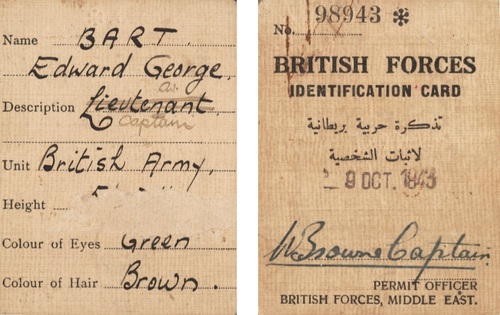 Name BART.
Edward George.
Description Lieutenant
Captain
Unit British Army.
Height
Colour of Eyes Green
Colour of Hair Brown.
No. 98943 *
BRITISH FORCES
IDENTIFICATION CARD
تذكرة حربية بريطانية
لاثبات الشخصية
9 OCT. 1943
W Browne Captain
PERMIT OFFICER
BRITISH FORCES, MIDDLE EAST.